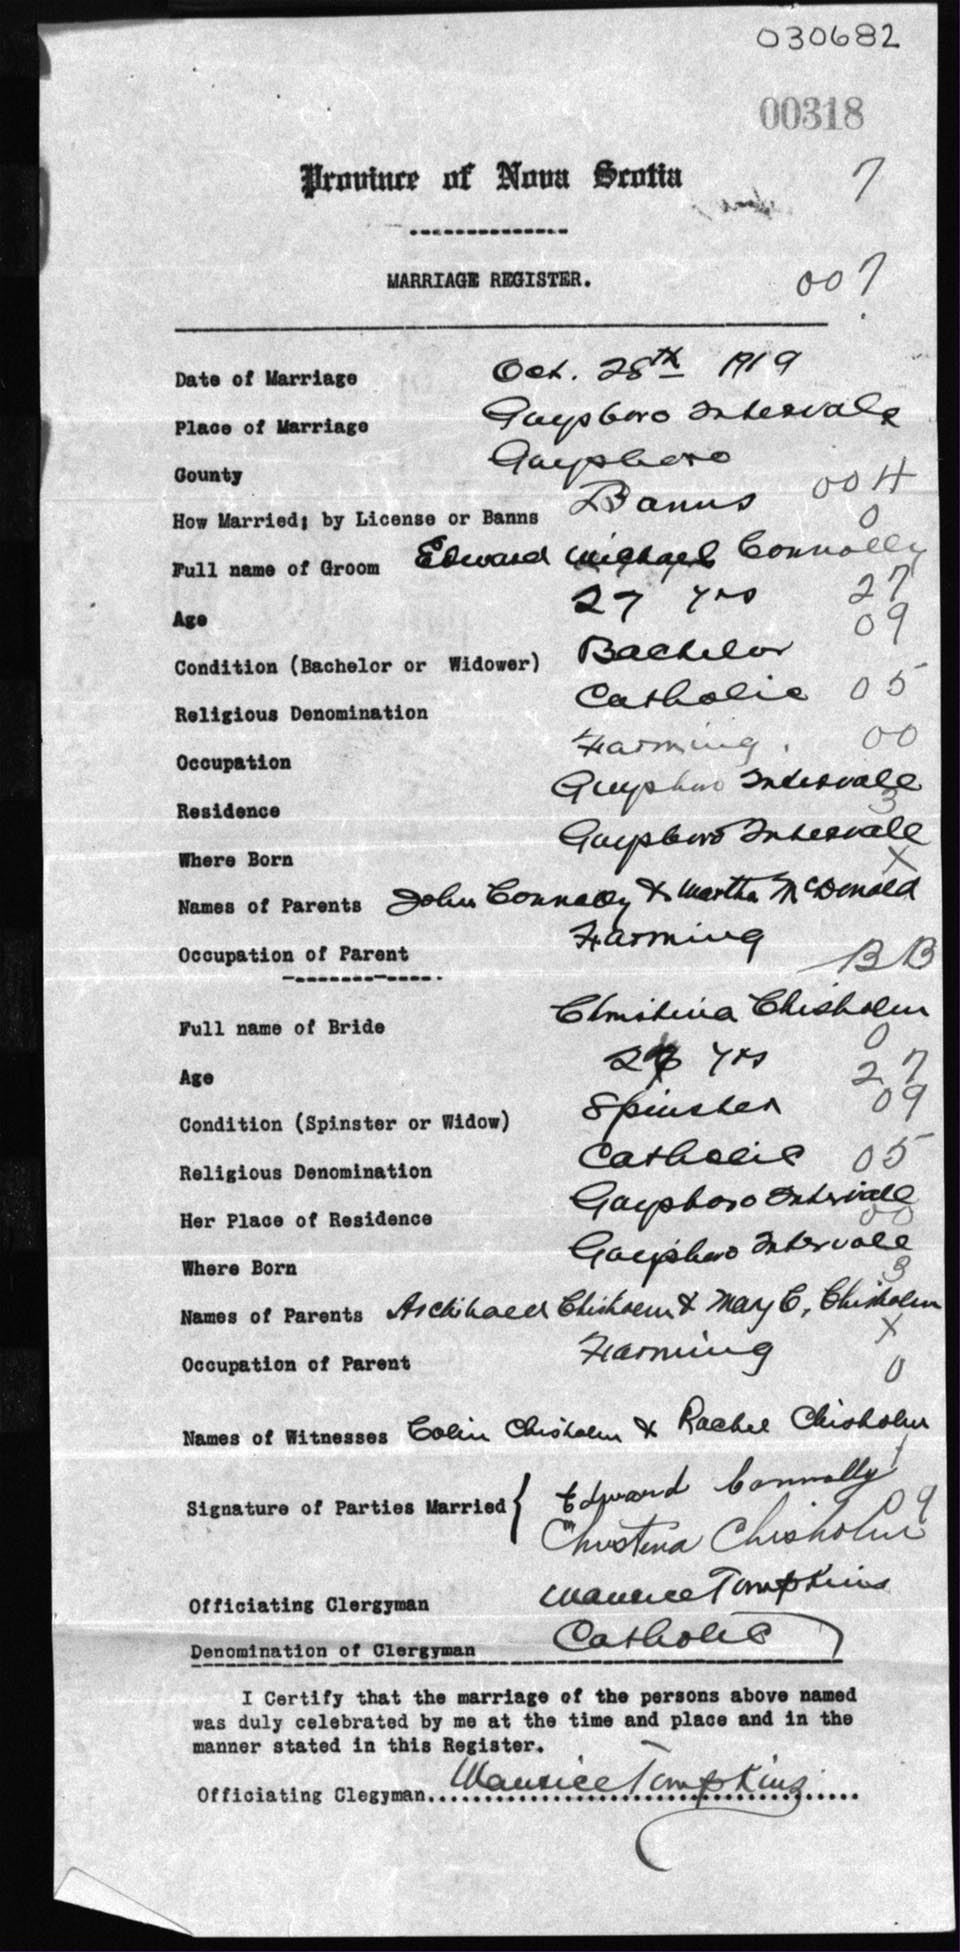 030682
00318
Province of Nova Scotia 7
MARRIAGE REGISTER. 007
Date of Marriage Oct. 28th 1919
Place of Marriage Guysboro Intervale
County Guysboro
How Married; by License or Banns Banns 004
0
Full name of Groom Edward Michael Connolly
Age 27 yrs 27
09
Condition (Bachelor or Widower) Bachelor
Religious Denomination Catholic 05
Occupation Farming. 00
Residence Guysboro Intervale
3
Where Born Guysboro Intervale
X
Names of Parents John Connolly & Martha McDonald
Occupation of Parent Farming
BB
Full name of Bride Christina Chisholm
0
Age yrs 27
Condition (Spinster or Widow) Spinster 09
Religious Denomination Catholic 05
Her Place of Residence Guysboro Intervale
00
Where Born Guysboro Intervale
3
Names of Parents Archibald Chisholm & Mary C. Chisholm
X
Occupation of Parent Farming
0
Names of Witnesses Colin Chisholm & Rachel Chisholm
Signature of Parties Married { Edward Connolly
09
Christina Chisholm
Officiating Clergyman Maurice Tompkins
Denomination of Clergyman Catholic
I Certify that the marriage of the persons above named
was duly celebrated by me at the time and place and in the
manner stated in this Register.
Officiating Clegyman Maurice Tompkins